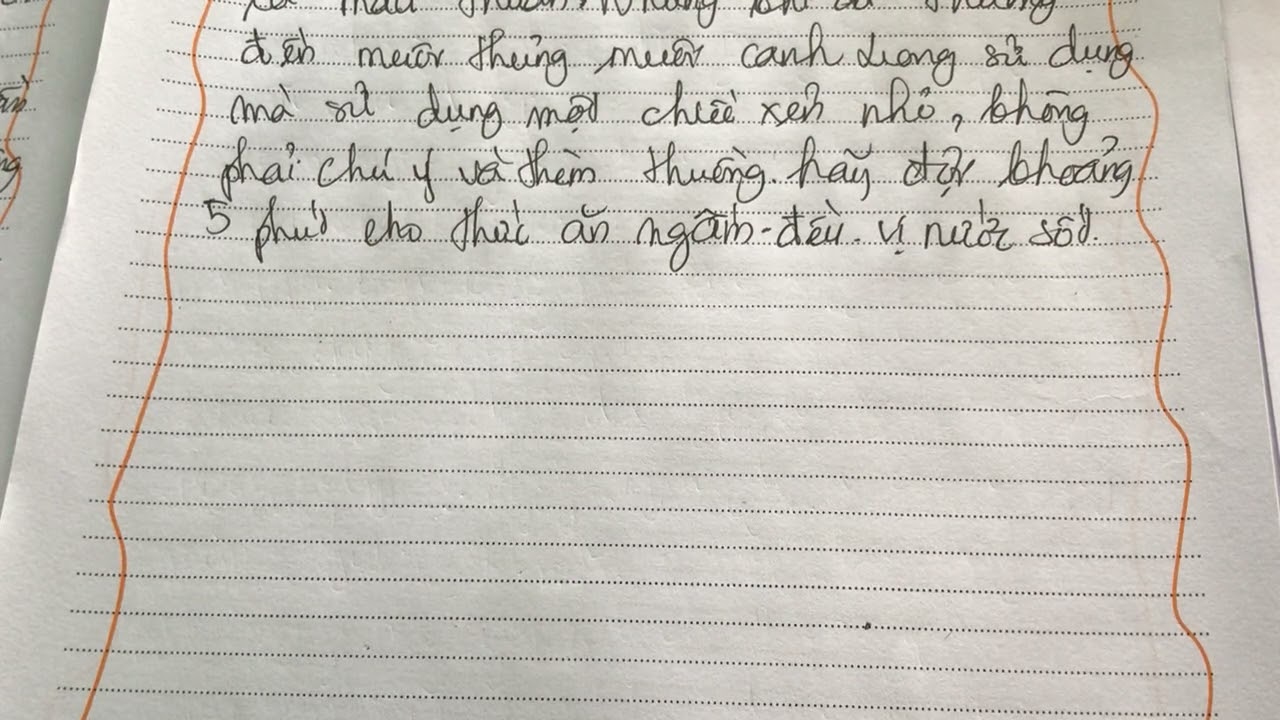 đến mười thủng mười canh dong sử dụng
mà sử dụng một chiếc xẻn nhỏ, không
phải chú ý và thèm thuồng. hãy đợi khoảng
5 phút cho thức ăn ngấm đều vị nước sốt.